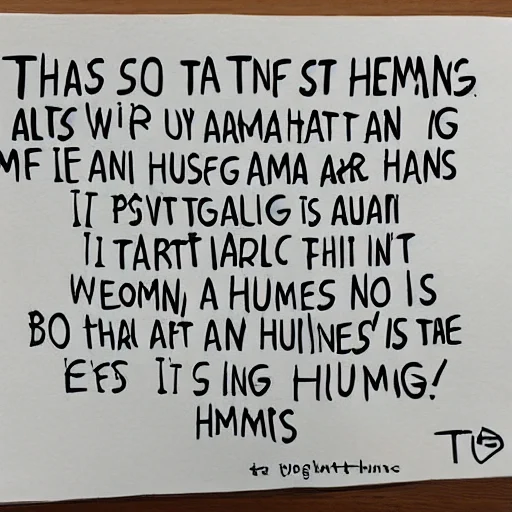 THAS SO TA TNF ST HEMMNS.
ALTS WIR UY AAMAHATTAN IG
MF IE ANI HUSFGAMA AER HANS
II PSVTTGALIG IS AUAN
II TARTIARLC THII INT
WEOMN, A HUMES NO IS
BO THAL AFT AN HUINES' IS TAE
EFS IT S ING HIUMIG!
HMMIS